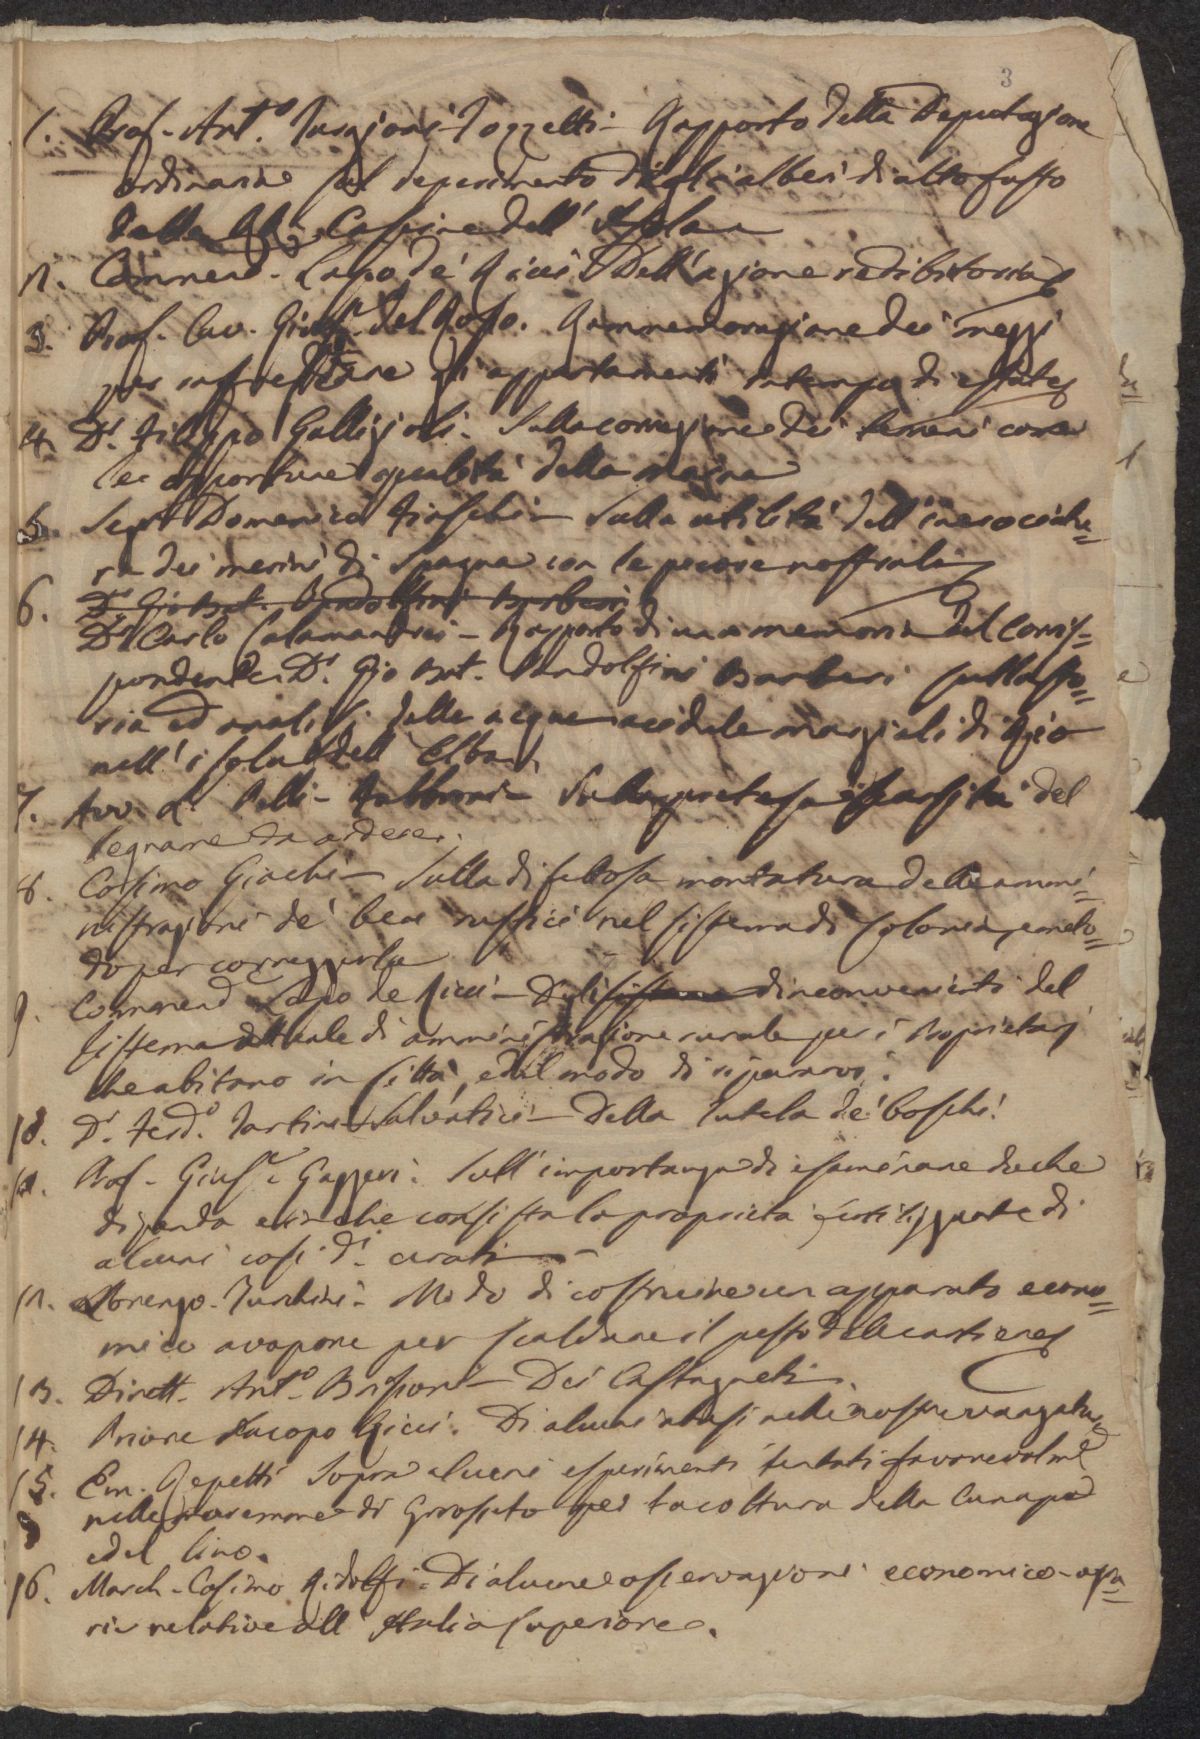 3
1. Prof. Ant.o Targioni Tozzetti - Rapporto della Deputazione
ordinaria sul deperimento degli alberi di alto fusto
delle RR. Cascine dell' Isola
2. Commend. Lapo de' Ricci Dell'azione redibitoria
3. Prof. Cav. Gius.e del Rosso. Rammemorazione dei mezzi
per rinfrescare gli appartamenti in tempo di estate
4. D.r Filippo Gallizioli. Sulla correzione dei terreni con
le opportune qualità della marna
5. Domenico Fiaschi - Sulla utilità dell'incrociatu=
ra dei merini di Spagna con le pecore nostrali
6. D.r Gio Bat. Pandolfini Barberi
D.r Carlo Calamandrei - Rapporto di una memoria del Corris=
pondente D.r Gio Bat. Pandolfini Barberi sulla sto=
ria ed analisi delle acque acidule marziali di Rio
nell' isola dell' Elba
7. Avv. Pelli-Fabbroni - Sulla pretesa scarsità del
legname da ardere.
8. Cosimo Giachi - Sulla difettosa montatura delle ammi=
nistrazioni de' beni rustici nel sistema di colonia, e meto=
do per correggerla
9. Commend. Lapo de Ricci - Degli sistema inconvenienti del
sistema attuale di amministrazione rurale per i Proprietarj
che abitano in città, ed il modo di ripararvi.
10. D.r Ferd.o Tartini-Salvatici - Della Tutela de' boschi.
11. Prof. Gius.e Gazzeri. Sull'importanza di esaminare da che
dipenda e in che consista la proprietà fertilizzante di
alcuni così d.i
12. Lorenzo Turchini - Modo di costruire un apparato econo=
mico a vapore per scaldare il pesto delle cartiere
13. Dirett. Ant.o Dei Castagneti.
14. Priore Jacopo Ricci. Di alcuni abusi nelle nostre
15. Em. Repetti Sopra alcuni esperimenti tentati favorevolm.e
nelle maremme di Grosseto per la coltura della Canapa
e del lino.
16. March. Cosimo Ridolfi. Di alcune osservazioni economico-agra=
rie relative all' Italia Superiore.